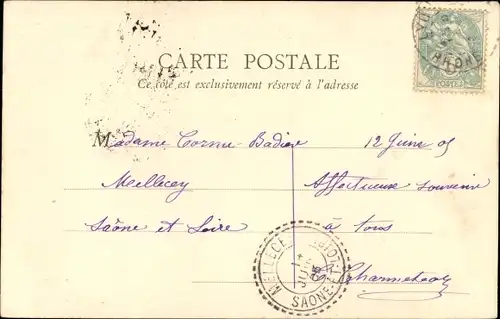 CARTE POSTALE
Ce côté est exclusivement réservé à l'adresse
Madame Cornu-Badier
Mellecey
Saône et Loire
12 Juin 05
Affectueux souvenir
à tous
MELLECEY
SAONE-ET-LOIRE
JUIN
05
RHONE
POSTES